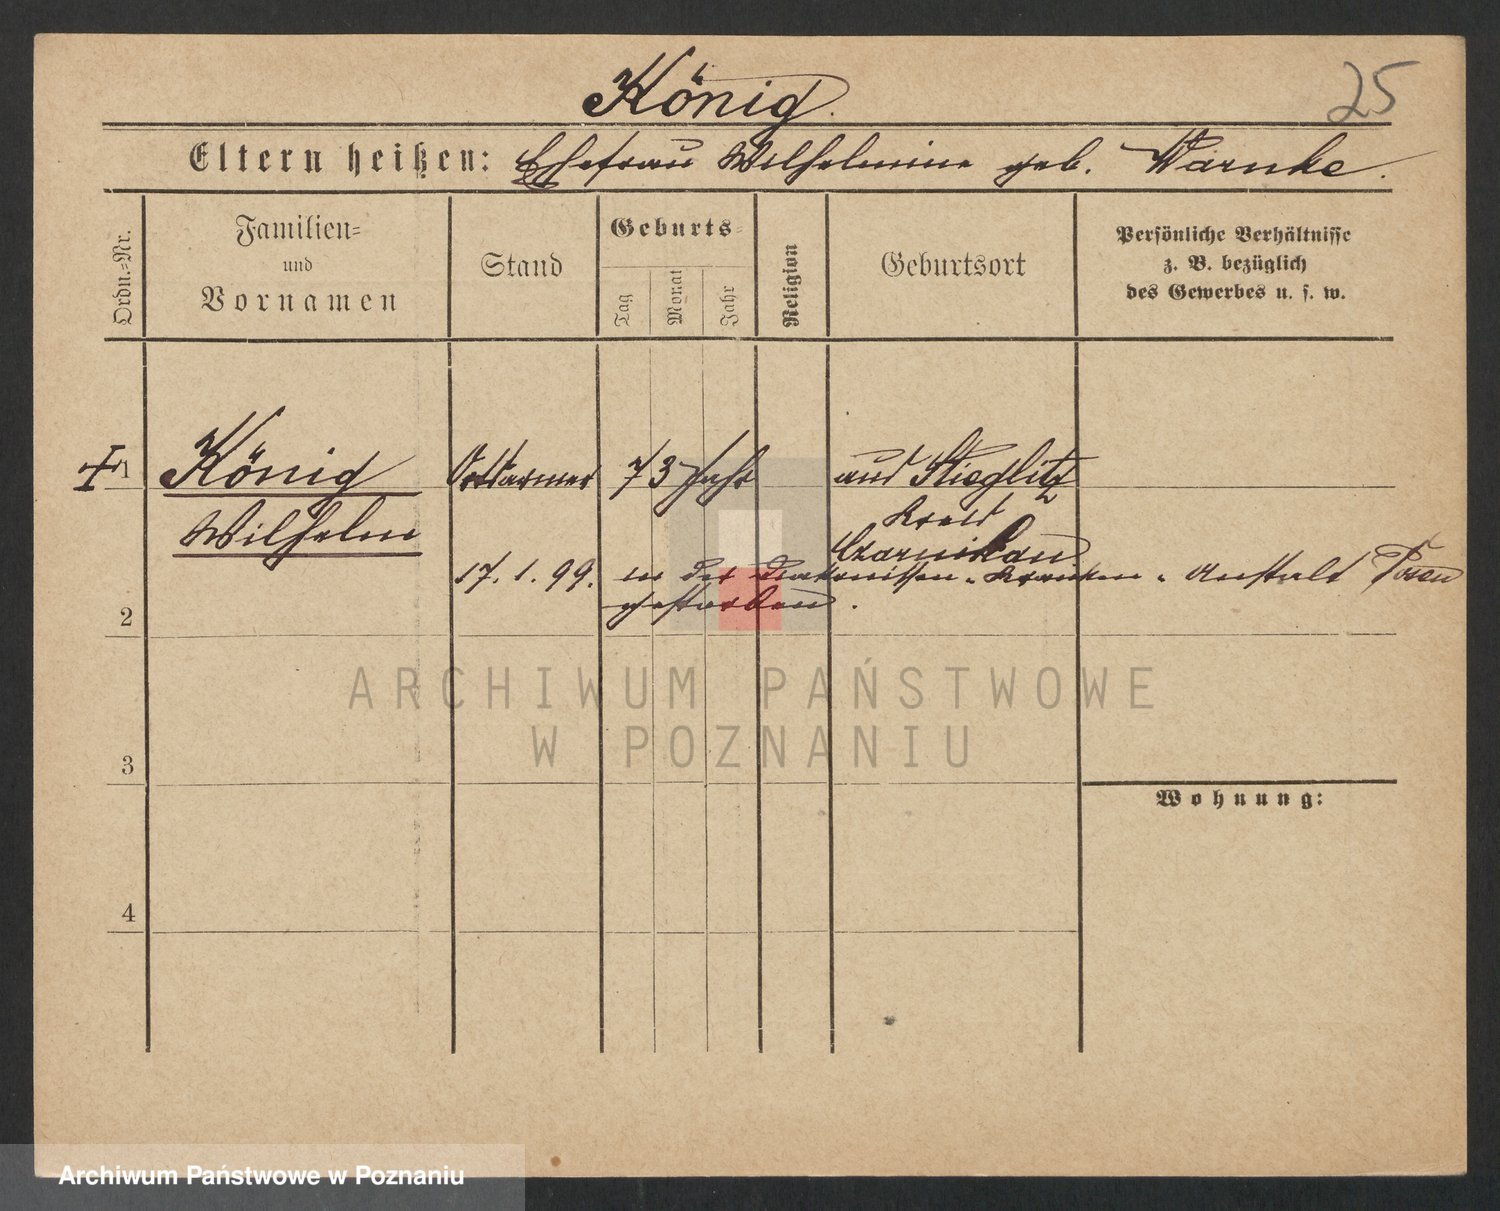 König.
25
Eltern heißen: Ehefrau Wilhelmine geb. Warnke.
Ordn.-Nr.
Familien-
und
Vornamen
Stand
Geburts-
Tag
Monat
Jahr
Religion
Geburtsort
Persönliche Verhältnisse
z. B. bezüglich
des Gewerbes u. s. w.
1
König
Wilhelm
Ortsarmer
73 Jahr
aus Stieglitz
Kreis
Czarnikau
17. 1. 99. in der Diakonissen-Kranken-Anstalt Posen
gestorben.
2
3
4
Wohnung:
ARCHIWUM PAŃSTWOWE
W POZNANIU
Archiwum Państwowe w Poznaniu